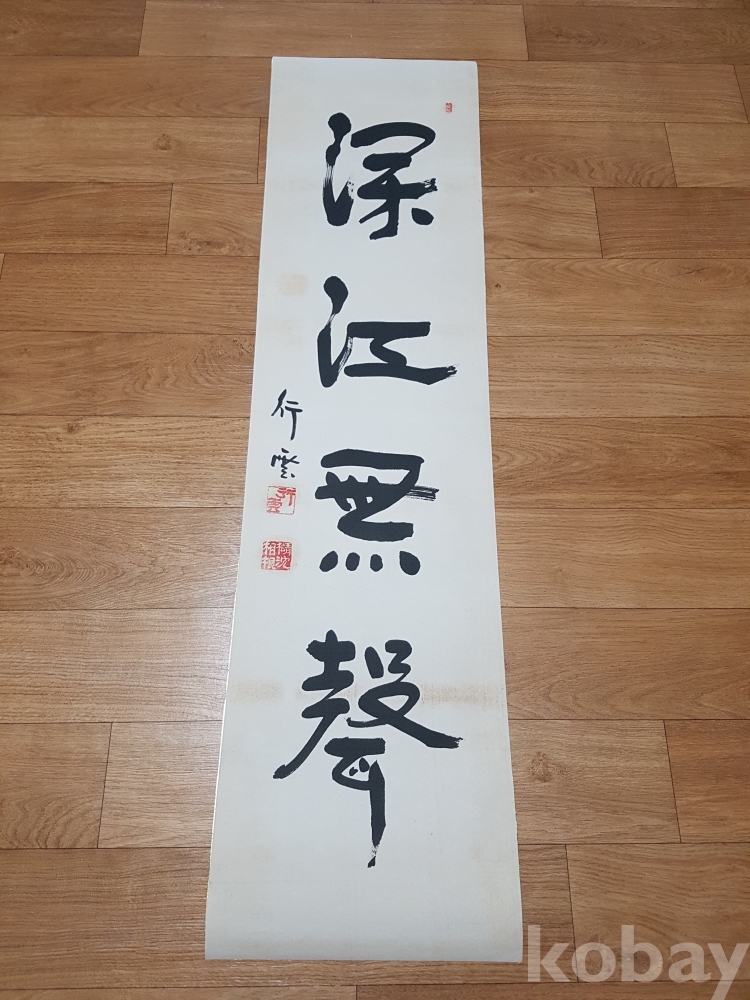 深江無聲
行雲
行雲
kobay